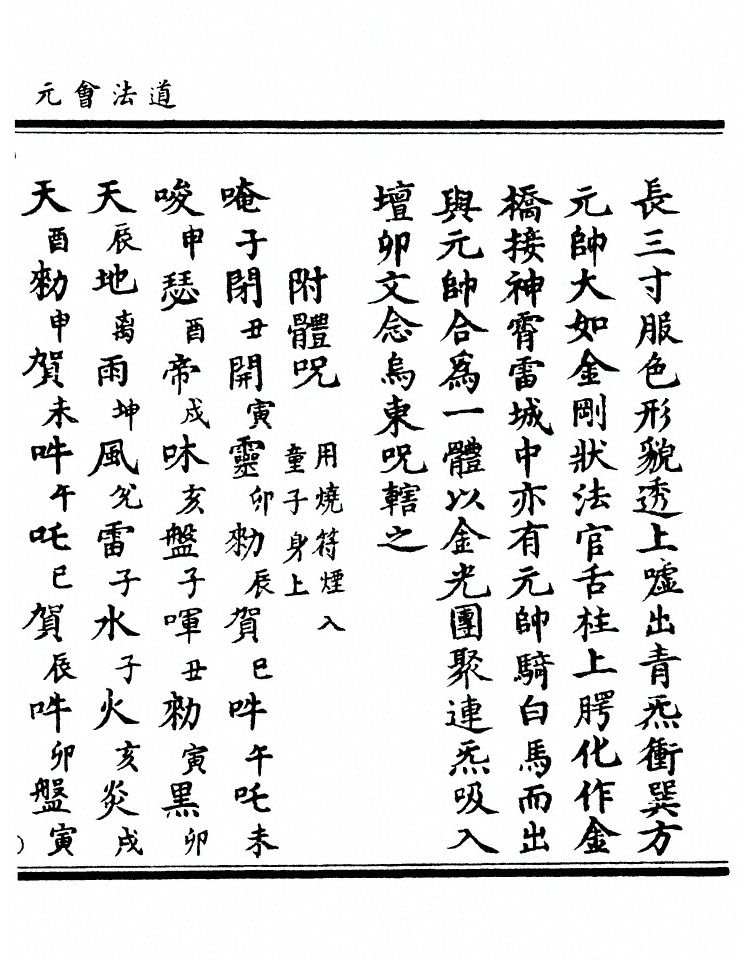 道法會元
長三寸服色形貌透上噓出青炁衝巽方
元帥大如金剛狀法官舌柱上腭化作金
橋接神霄雷城中亦有元帥騎白馬而出
與元帥合爲一體以金光團聚連炁吸入
壇卯文念烏東呪轄之
附體呪
用燒符煙入
童子身上
唵子閉丑開寅靈卯勑辰賀巳吽午吒未
唆申瑟酉帝戌味亥盤子喗丑勑寅黑卯
天辰地离雨坤風兊雷子水子火亥炎戌
天酉勑申賀未吽午吒巳賀辰吽卯盤寅